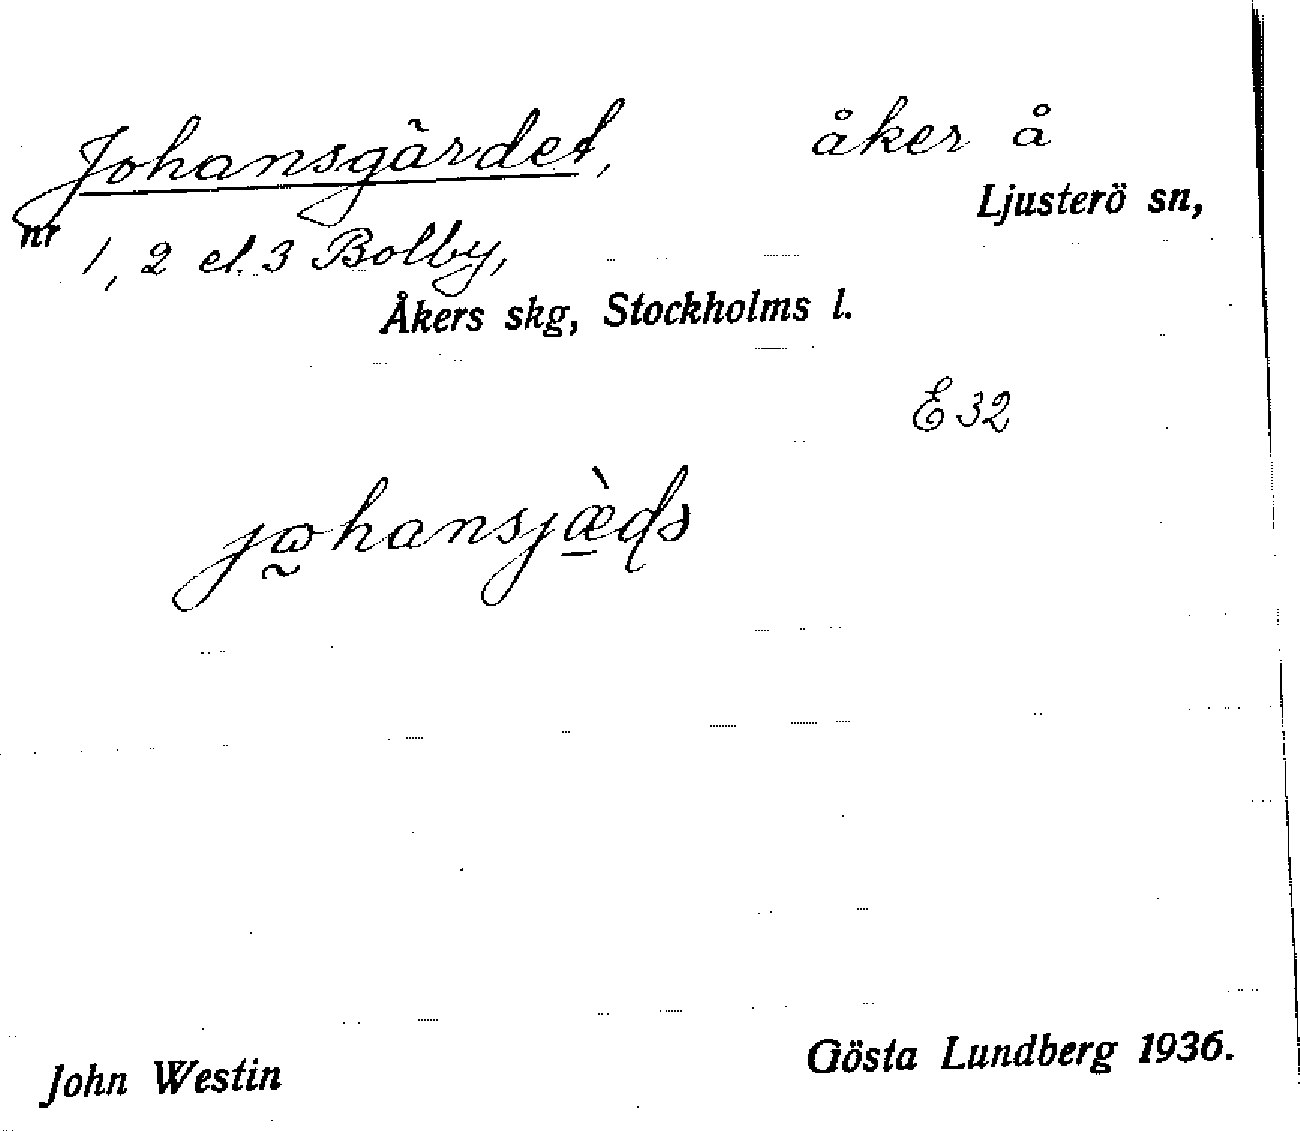 Johansgärdet, åker å
Ljusterö sn,
nr 1, 2 el. 3 Bolby,
Åkers skg, Stockholms l.
E 32
jω̰hansjæ̠̀ds
John Westin Gösta Lundberg 1936.